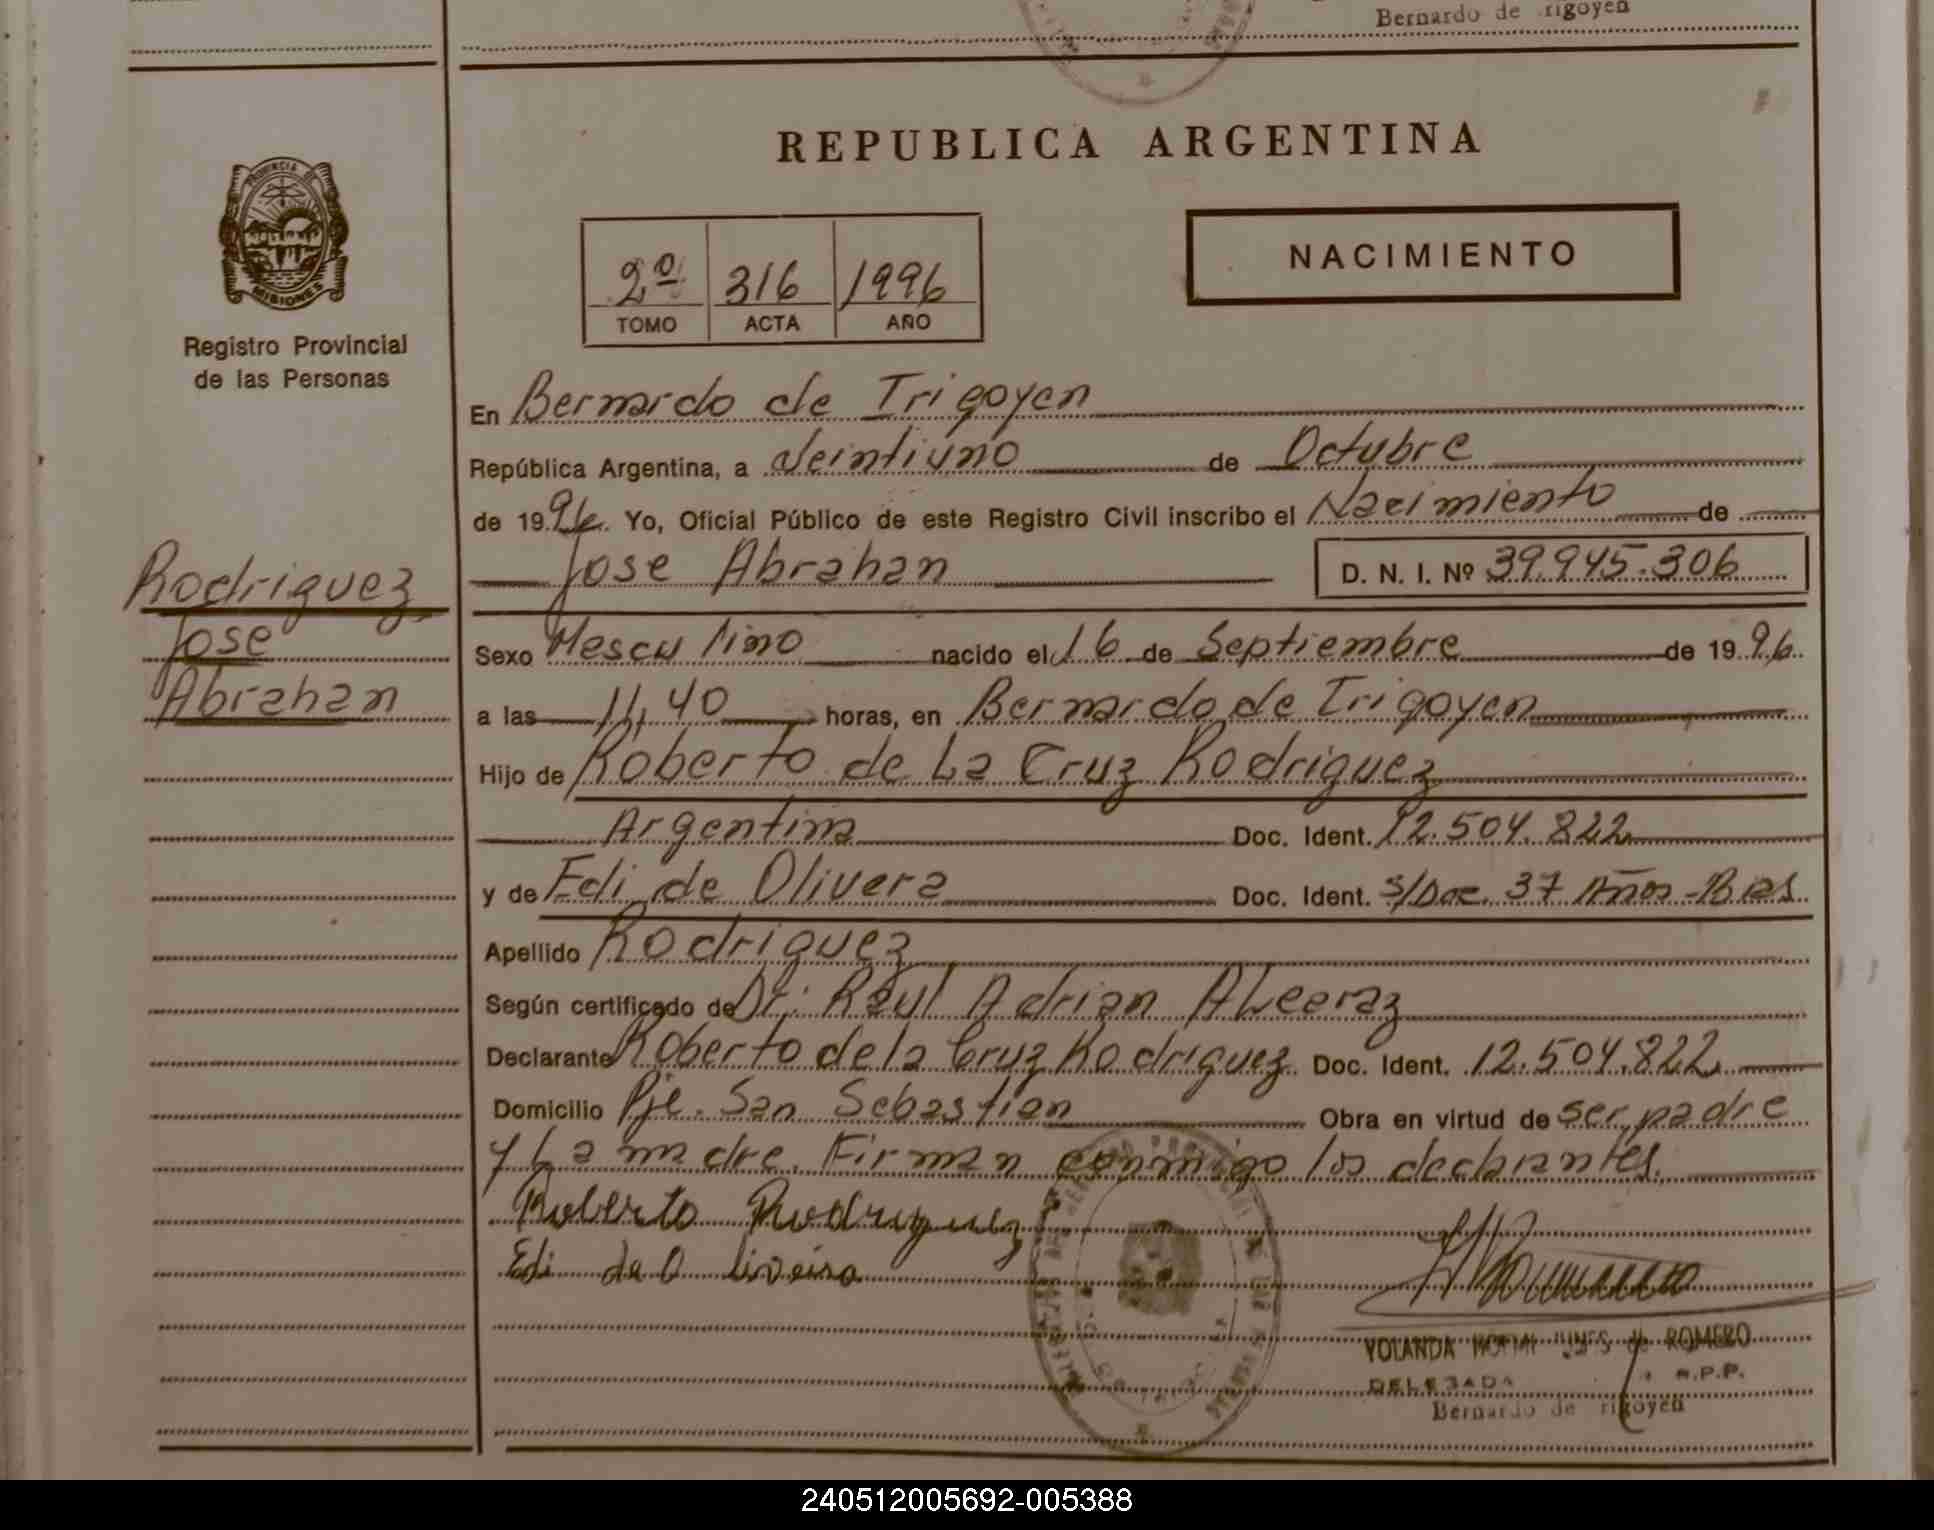 Bernardo de Irigoyen
REPUBLICA ARGENTINA
PROVINCIA DE
MISIONES
Registro Provincial
de las Personas
NACIMIENTO
2º 316 1996
TOMO ACTA AÑO
En Bernardo de Irigoyen
República Argentina, a Veintiuno de Octubre
de 1996. Yo, Oficial Público de este Registro Civil inscribo el Nacimiento de
Jose Abrahan D. N. I. Nº 39.945.306
Rodriguez
Jose
Abrahan
Sexo Masculino nacido el 16 de Septiembre de 1996.
a las 11,40 horas, en Bernardo de Irigoyen
Hijo de Roberto de La Cruz Rodriguez
Argentina Doc. Ident. 12.504.822
y de Edi de Olivera Doc. Ident. s/Doc. 37 Años - Bras.
Apellido Rodriguez
Según certificado de Dr. Raul Adrian Alcaraz
Declarante Roberto de la Cruz Rodriguez Doc. Ident. 12.504.822
Domicilio Pje. San Sebastian Obra en virtud de ser padre
y La madre. Firman conmigo los declarantes.
Roberto Rodriguez
Edi de Oliveira
YOLANDA de ROMERO
DELEGADA R.P.P.
Bernardo de Irigoyen
240512005692-005388